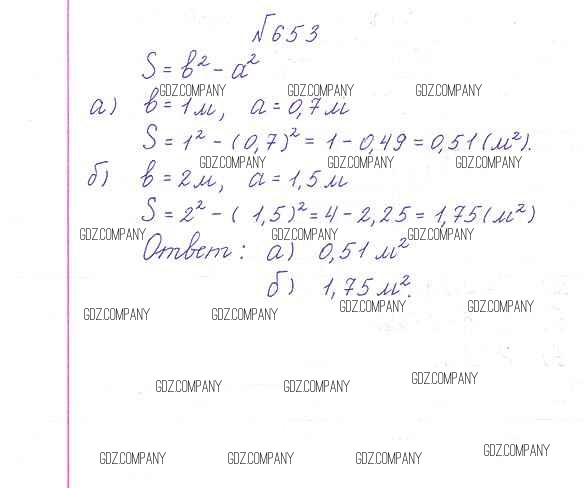 №653
S = b² - a²
GDZ.COMPANY GDZ.COMPANY GDZ.COMPANY
а) b = 1 м, a = 0,7 м
S = 1² - (0,7)² = 1 - 0,49 = 0,51 (м²).
GDZ.COMPANY GDZ.COMPANY GDZ.COMPANY
б) b = 2 м, a = 1,5 м
S = 2² - ( 1,5)² = 4 - 2,25 = 1,75 (м²)
GDZ.COMPANY GDZ.COMPANY GDZ.COMPANY
Ответ: а) 0,51 м²
б) 1,75 м².
GDZ.COMPANY GDZ.COMPANY GDZ.COMPANY GDZ.COMPANY
GDZ.COMPANY GDZ.COMPANY GDZ.COMPANY
GDZ.COMPANY GDZ.COMPANY GDZ.COMPANY GDZ.COMPANY